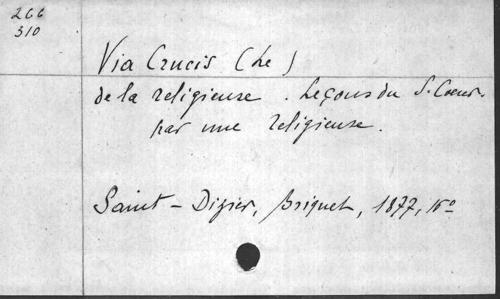 266
310
Via Crucis (Le)
de la religieuse. Leçons du S. Coeur.
par une religieuse.
Saint-Dizier, Briquet, 1877, 16º